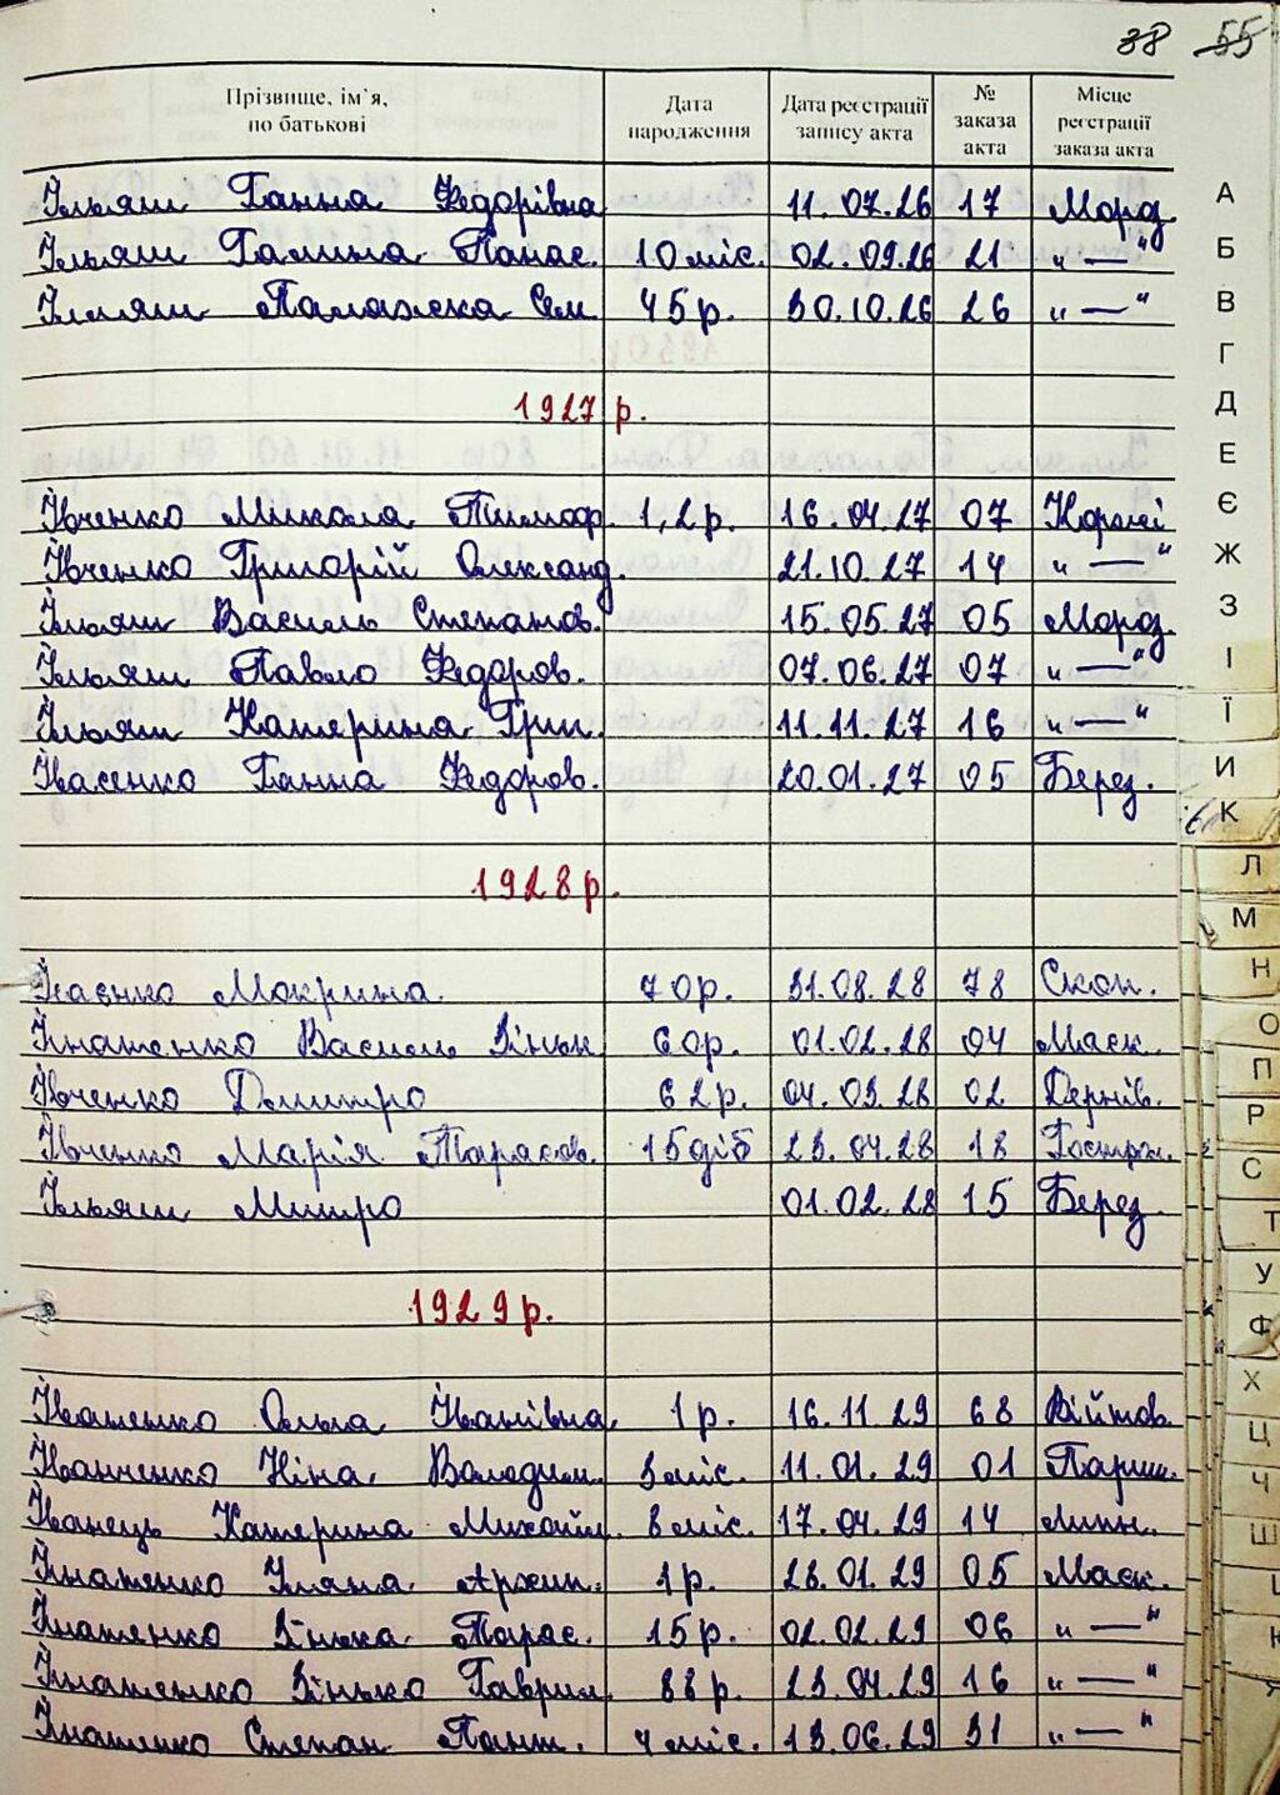 38 55
Прізвище, ім`я, по батькові Дата народження Дата реєстрації запису акта № заказа акта Місце реєстрації заказа акта
Ільяш Ганна Федорівна 11.07.26 17 Мороз.
Ільяш Галина Панас. 10 міс. 02.09.26 21 " — "
Ільяш Палажка Сем. 45 р. 30.10.26 26 " — "
1927 р.
Івченко Микола Тимоф. 1,2 р. 16.04.27 07 Корнії
Івченко Григорій Олександ. 21.10.27 14 " — "
Ільяш Василь Степанов. 15.05.27 05 Мороз.
Ільяш Павло Федоров. 07.06.27 07 " — "
Ільяш Катерина Григ. 11.11.27 16 " — "
Івасенко Ганна Федоров. 20.01.27 05 Берез.
1928 р.
Ісаєнко Мокрина 70 р. 31.08.28 78 Скоп.
Ігнатенко Василь Зіньк. 60 р. 01.02.28 04 Маск.
Івченко Дмитро 62 р. 04.03.28 02 Дернів.
Івченко Марія Тарасов. 15 діб 23.04.28 18
Ільяш Митро 01.02.28 15 Берез.
1929 р.
Іваненко Ольга Іванівна 1 р. 16.11.29 68 Війтов.
Іванченко Ніна Володим. 3 міс. 11.01.29 01 Париш.
Іванець Катерина Михайл. 8 міс. 17.04.29 14 Липн.
Ігнатенко Уляна Архип. 1 р. 28.01.29 05 Маск.
Ігнатенко Зінька Тарас. 15 р. 02.02.29 06 " — "
Ігнатенко Зінько Гаврил. 88 р. 23.04.29 16 " — "
Ігнатенко Степан Пант. 4 міс. 13.06.29 31 " — "
А
Б
В
Г
Д
Е
Є
Ж
З
І
Ї
И
К
Л
М
Н
О
П
Р
С
Т
У
Ф
Х
Ц
Ч
Ш